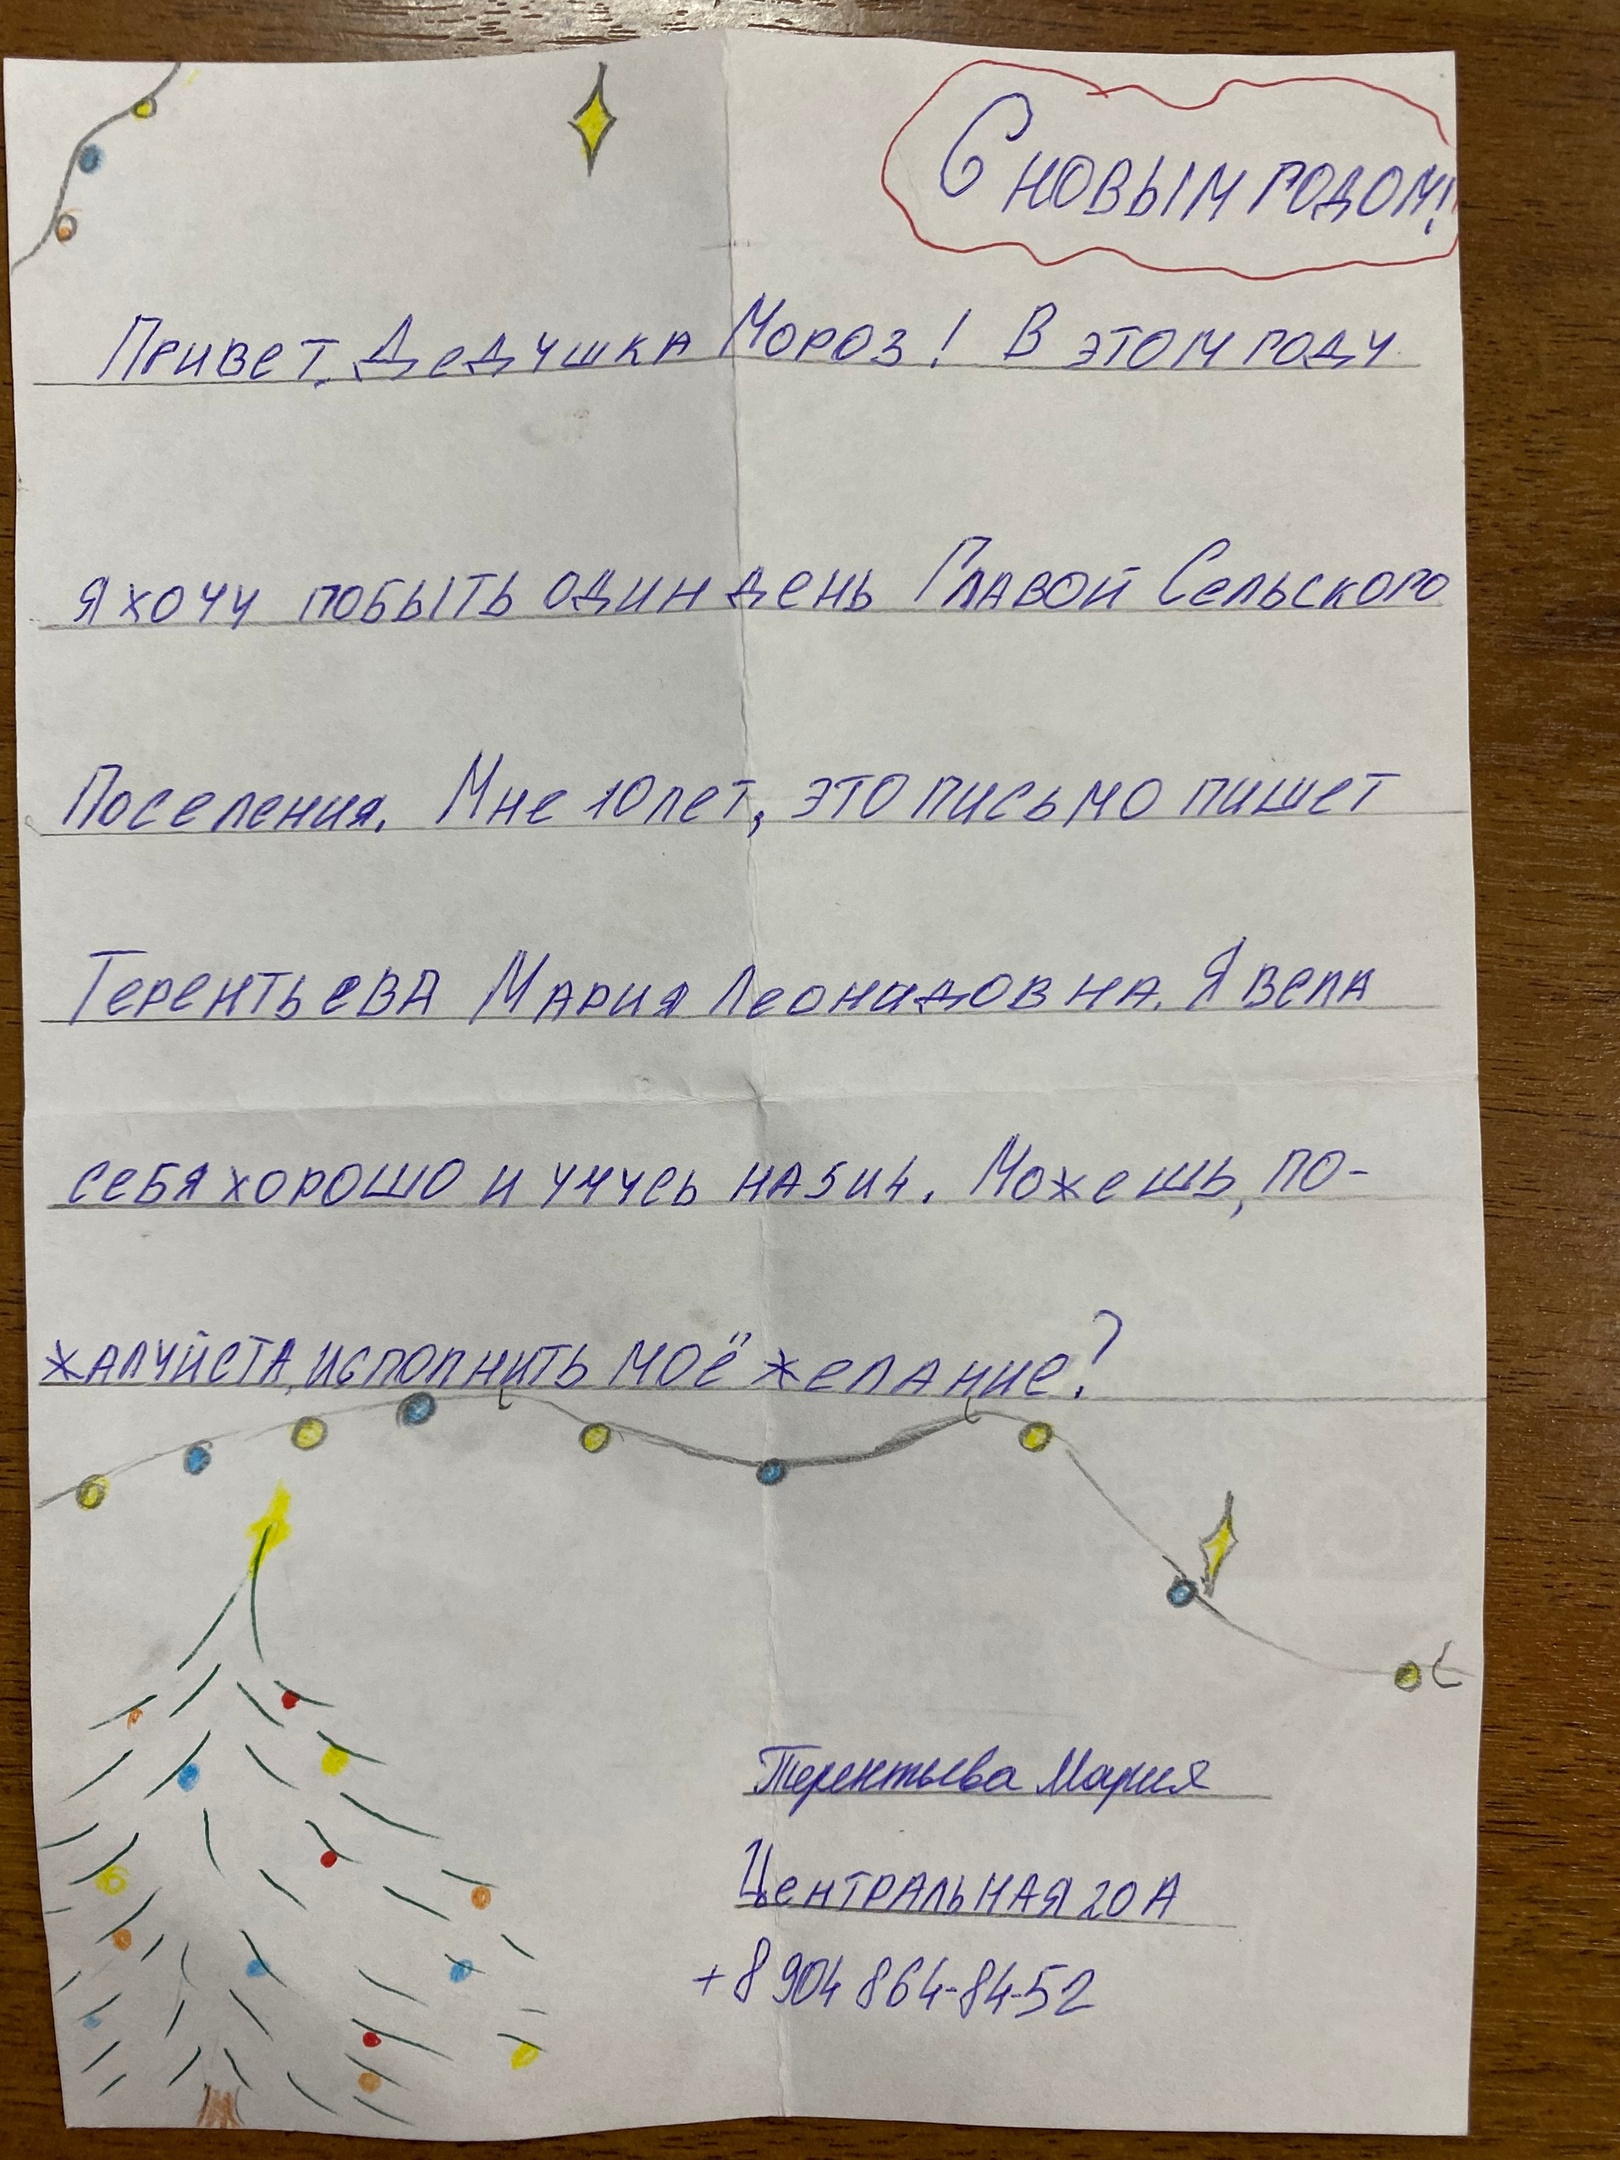 С новым годом!
Привет, Дедушка Мороз! В этом году
я хочу побыть один день Главой Сельского
Поселения. Мне 10 лет, это письмо пишет
Терентьева Мария Леонидовна. Я вела
себя хорошо и учусь на 5 и 4. Можешь, по-
жалуйста, исполнить моё желание?
Терентьева Мария
Центральная 20А
+8 904 864-84-52